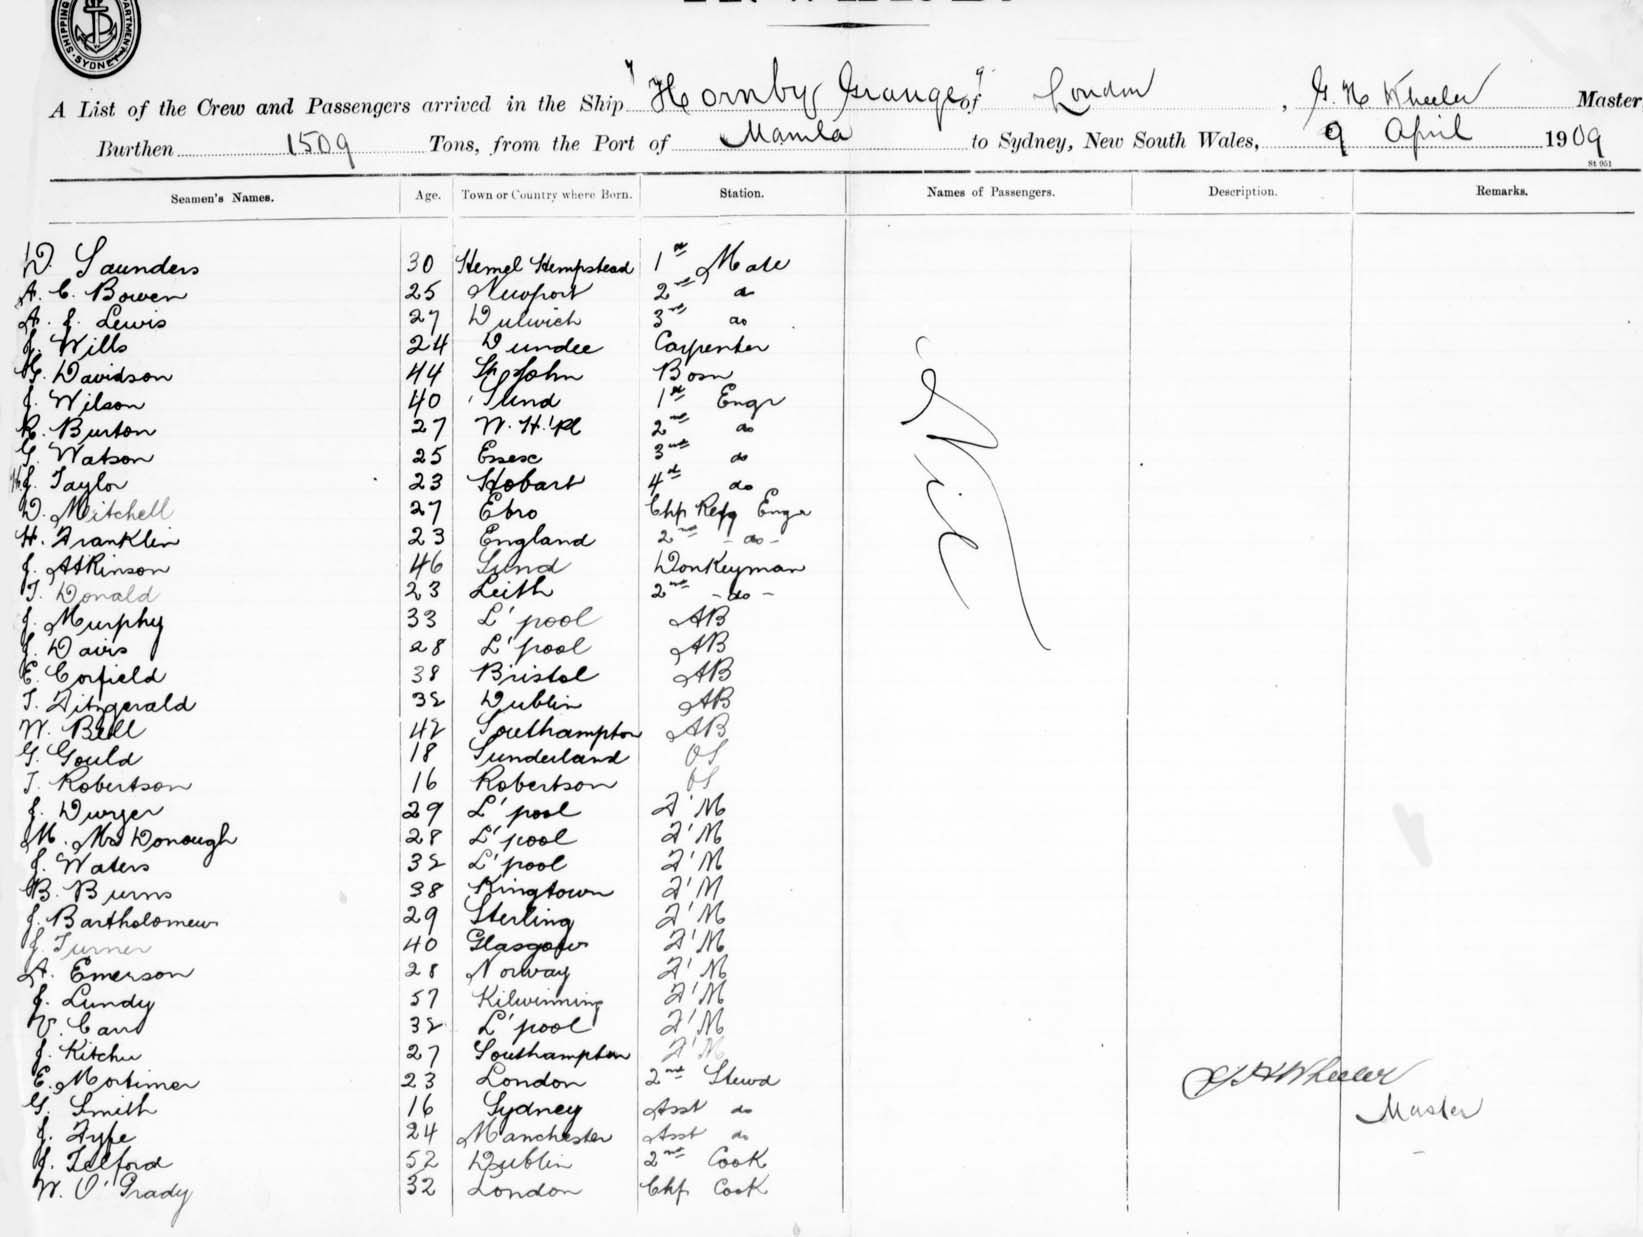 SHIPPING DEPARTMENT SYDNEY
A List of the Crew and Passengers arrived in the Ship "Hornby Grange" of London, G. H. Wheeler Master,
Burthen 1509 Tons, from the Port of Manila to Sydney, New South Wales, 9 April 1909
St 951
Seamen's Names. Age. Town or Country where Born. Station. Names of Passengers. Description. Remarks.
D. Saunders 30 Hemel Hempstead 1st Mate
A. C. Bowen 25 Newport 2nd do
A. J. Lewis 27 Dulwich 3rd do
J. Wills 24 Dundee Carpenter
G. Davidson 44 St John Bosn
J. Wilson 40 Sund 1st Engr
R. Burton 27 W. H'Pl 2nd do
G. Watson 25 Essex 3rd do
J. Taylor 23 Hobart 4th do
D. Mitchell 27 Ebro Chf Refg Engr
H. Franklin 23 England 2nd - do -
J. Atkinson 46 Sund Donkeyman
T. Donald 23 Leith 2nd - do -
J. Murphy 33 L'pool AB
J. Davis 28 L'pool AB
E. Corfield 38 Bristol AB
T. Fitzgerald 32 Dublin AB
W. Bell 42 Southampton AB
G. Gould 18 Sunderland OS
T. Robertson 16 Robertson OS
J. Dwyer 29 L'pool F'M
M. McDonough 28 L'pool F'M
J. Waters 32 L'pool F'M
B. Burns 38 Kingtown F'M
J. Bartholomew 29 Sterling F'M
J. Turner 40 Glasgow F'M
A. Emerson 28 Norway F'M
J. Lundy 57 Kilwinning F'M
V. Carr 32 L'pool F'M
J. Kitcher 27 Southampton F'M
E. Mortimer 23 London 2nd Stewd
G. Smith 16 Sydney Asst do
J. Fyfe 24 Manchester Asst do
J. Telford 52 Dublin 2nd Cook
W. O'Grady 32 London Chf Cook
Nil
G H Wheeler
Master